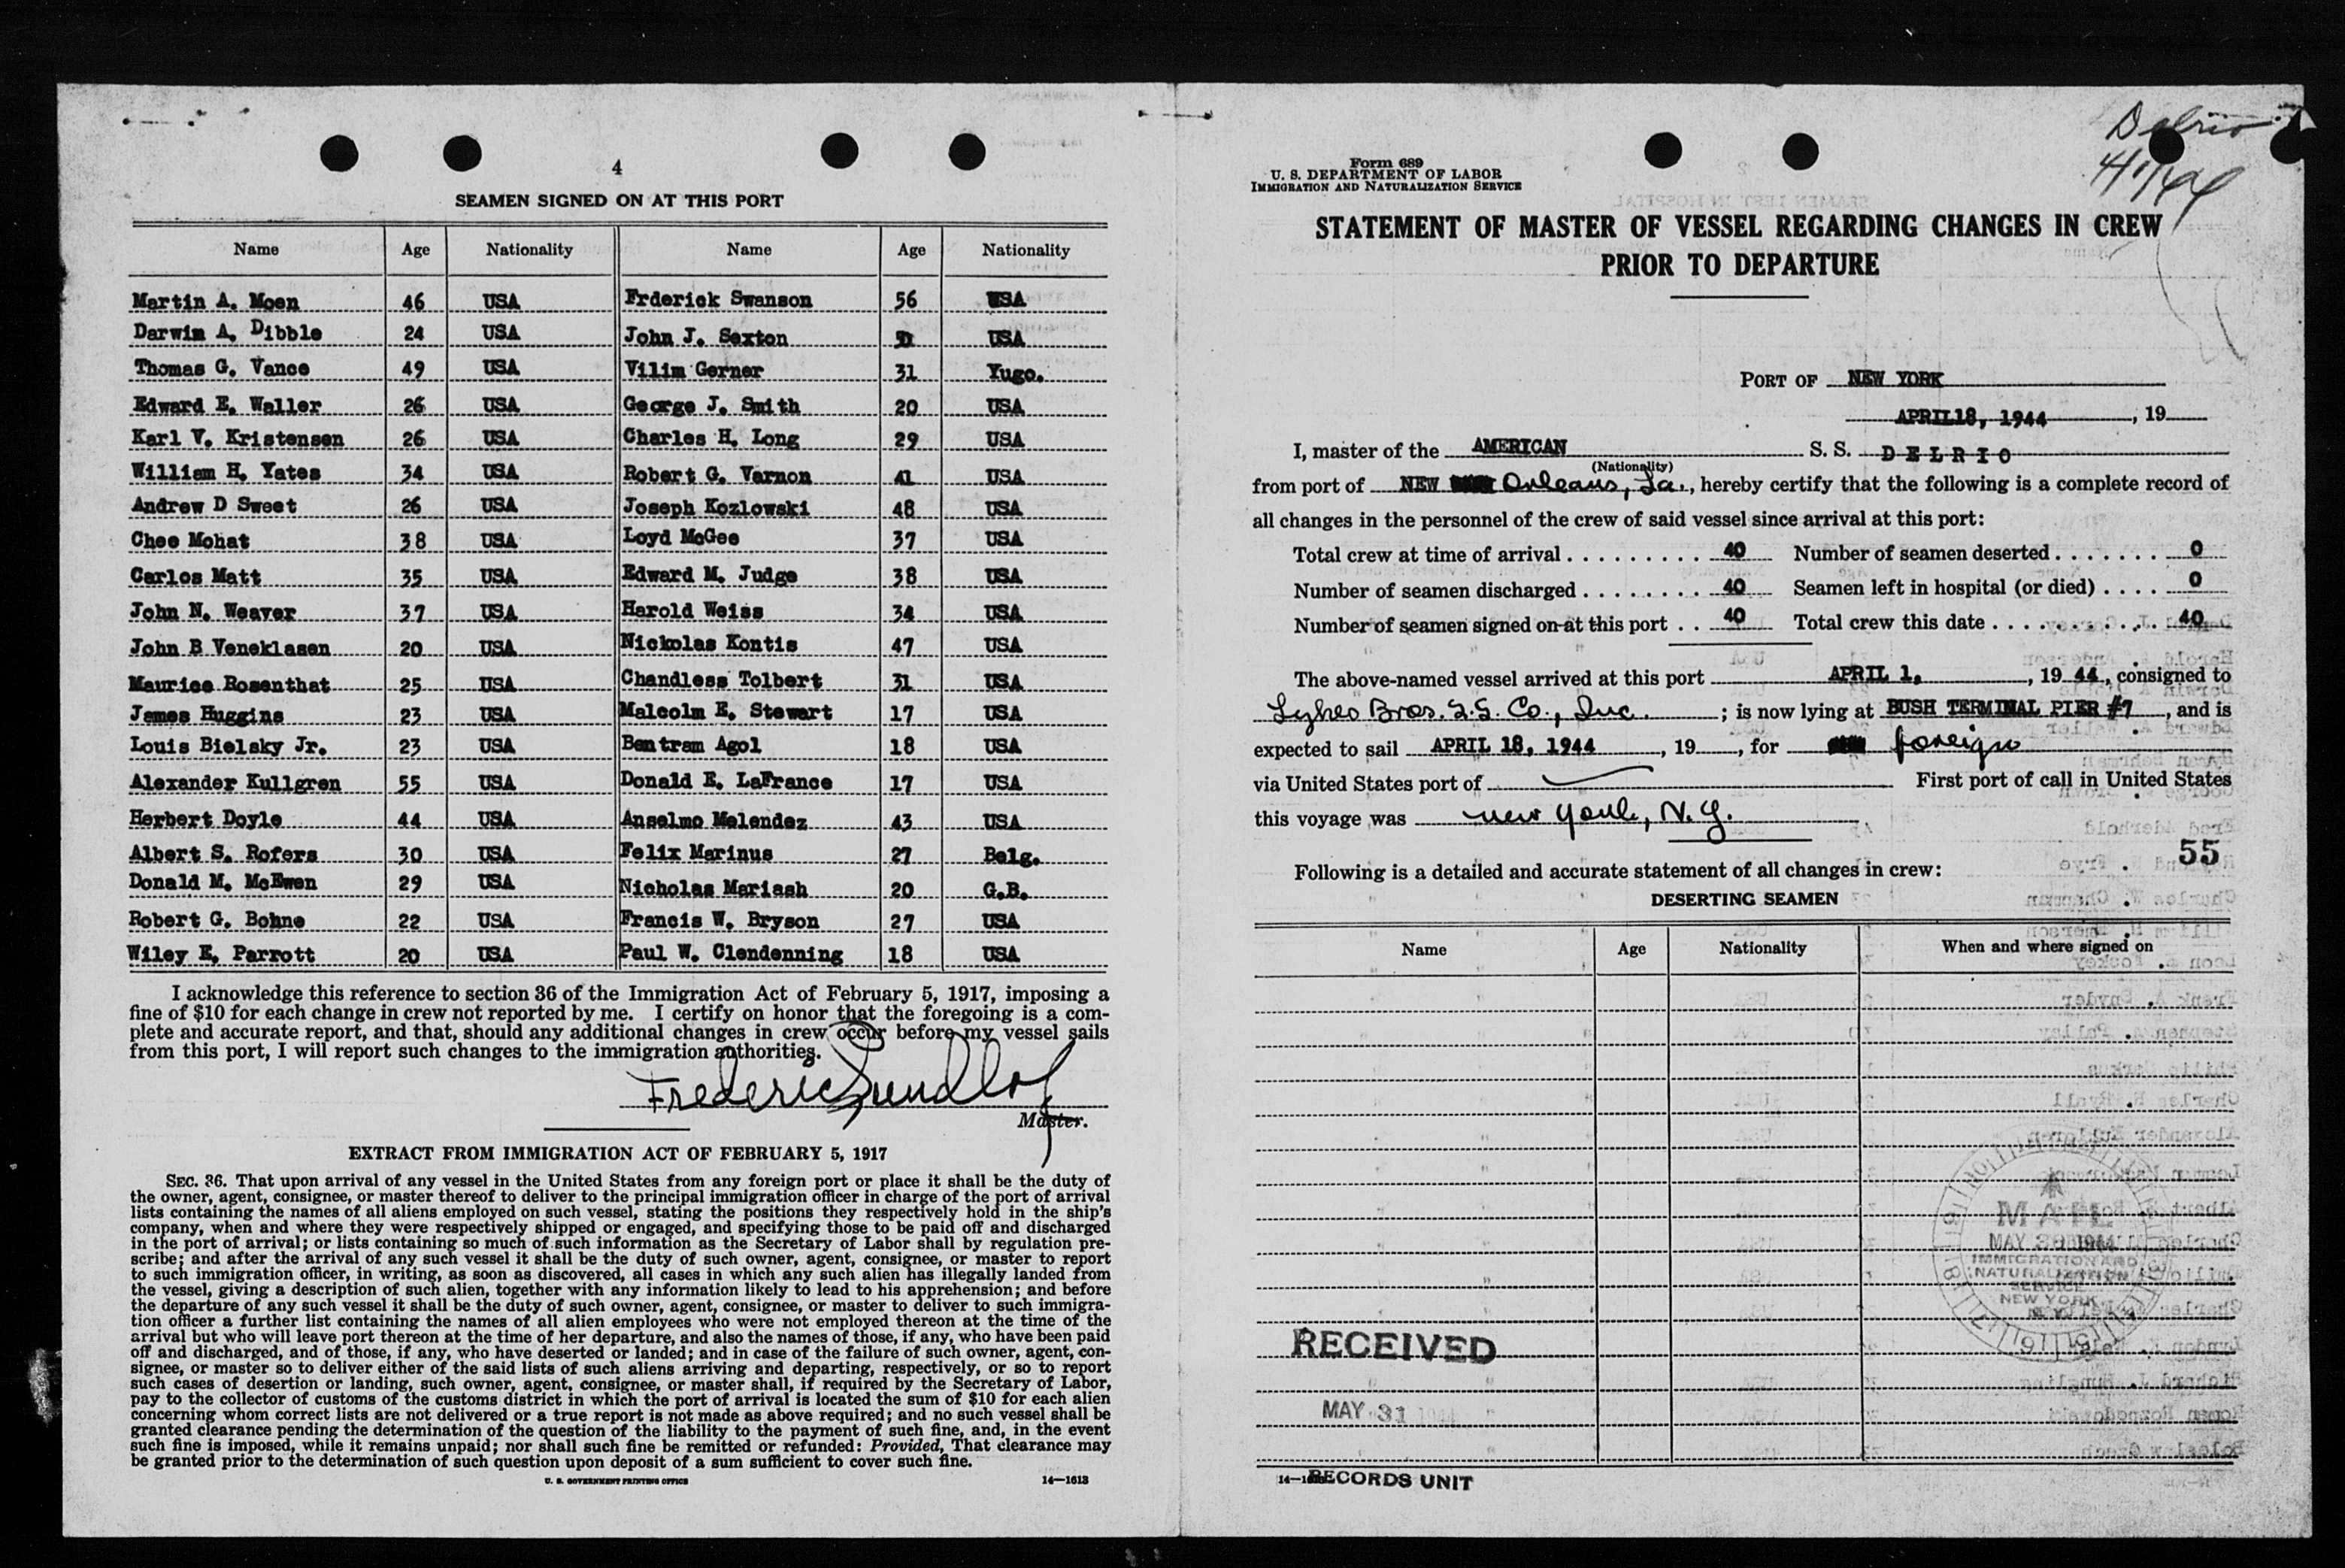 4
SEAMEN SIGNED ON AT THIS PORT
Name Age Nationality Name Age Nationality
Martin A. Moen 46 USA Frderick Swanson 56 USA
Darwin A. Dibble 24 USA John J. Sexton USA
Thomas G. Vance 49 USA Vilim Gerner 31 Yugo.
Edward E. Waller 26 USA George J. Smith 20 USA
Karl V. Kristensen 26 USA Charles H. Long 29 USA
William H. Yates 34 USA Robert G. Varnon 41 USA
Andrew D Sweet 26 USA Joseph Kozlowski 48 USA
Chee Mohat 38 USA Loyd McGee 37 USA
Carlos Matt 35 USA Edward M. Judge 38 USA
John N. Weaver 37 USA Harold Weiss 34 USA
John B Veneklasen 20 USA Nickolas Kontis 47 USA
Maurice Rosenthat 25 USA Chandless Tolbert 31 USA
James Huggins 23 USA Malcolm E. Stewart 17 USA
Louis Bielsky Jr. 23 USA Bentram Agol 18 USA
Alexander Kullgren 55 USA Donald E. LaFrance 17 USA
Herbert Doyle 44 USA Anselmo Melendez 43 USA
Albert S. Rofers 30 USA Felix Marinus 27 Belg.
Donald M. McEwen 29 USA Nicholas Mariash 20 G.B.
Robert G. Bohne 22 USA Francis W. Bryson 27 USA
Wiley E. Parrott 20 USA Paul W. Clendenning 18 USA
I acknowledge this reference to section 36 of the Immigration Act of February 5, 1917, imposing a
fine of $10 for each change in crew not reported by me. I certify on honor that the foregoing is a com-
plete and accurate report, and that, should any additional changes in crew occur before my vessel sails
from this port, I will report such changes to the immigration authorities.
Frederic Sundlof
Master.
EXTRACT FROM IMMIGRATION ACT OF FEBRUARY 5, 1917
SEC. 36. That upon arrival of any vessel in the United States from any foreign port or place it shall be the duty of
the owner, agent, consignee, or master thereof to deliver to the principal immigration officer in charge of the port of arrival
lists containing the names of all aliens employed on such vessel, stating the positions they respectively hold in the ship's
company, when and where they were respectively shipped or engaged, and specifying those to be paid off and discharged
in the port of arrival; or lists containing so much of such information as the Secretary of Labor shall by regulation pre-
scribe; and after the arrival of any such vessel it shall be the duty of such owner, agent, consignee, or master to report
to such immigration officer, in writing, as soon as discovered, all cases in which any such alien has illegally landed from
the vessel, giving a description of such alien, together with any information likely to lead to his apprehension; and before
the departure of any such vessel it shall be the duty of such owner, agent, consignee, or master to deliver to such immigra-
tion officer a further list containing the names of all alien employees who were not employed thereon at the time of the
arrival but who will leave port thereon at the time of her departure, and also the names of those, if any, who have been paid
off and discharged, and of those, if any, who have deserted or landed; and in case of the failure of such owner, agent, con-
signee, or master so to deliver either of the said lists of such aliens arriving and departing, respectively, or so to report
such cases of desertion or landing, such owner, agent, consignee, or master shall, if required by the Secretary of Labor,
pay to the collector of customs of the customs district in which the port of arrival is located the sum of $10 for each alien
concerning whom correct lists are not delivered or a true report is not made as above required; and no such vessel shall be
granted clearance pending the determination of the question of the liability to the payment of such fine, and, in the event
such fine is imposed, while it remains unpaid; nor shall such fine be remitted or refunded: Provided, That clearance may
be granted prior to the determination of such question upon deposit of a sum sufficient to cover such fine.
U. S. GOVERNMENT PRINTING OFFICE 14—1613
Delrio
4/1/44
Form 689
U. S. DEPARTMENT OF LABOR
IMMIGRATION AND NATURALIZATION SERVICE
STATEMENT OF MASTER OF VESSEL REGARDING CHANGES IN CREW
PRIOR TO DEPARTURE
PORT OF NEW YORK
APRIL18, 1944, 19
I, master of the AMERICAN S. S. DELRIO
(Nationality)
from port of NEW Orleans, La., hereby certify that the following is a complete record of
all changes in the personnel of the crew of said vessel since arrival at this port:
Total crew at time of arrival 40 Number of seamen deserted 0
Number of seamen discharged 40 Seamen left in hospital (or died) 0
Number of seamen signed on at this port 40 Total crew this date 40
The above-named vessel arrived at this port APRIL 1, , 19 44, consigned to
Lykes Bros. S.S. Co., Inc. ; is now lying at BUSH TERMINAL PIER #7, and is
expected to sail APRIL 18, 1944, 19 , for foreign
via United States port of First port of call in United States
this voyage was New York, N.Y.
55
Following is a detailed and accurate statement of all changes in crew:
DESERTING SEAMEN
Name Age Nationality When and where signed on
MAIL
MAY 1944
IMMIGRATION AND
NATURALIZATION
SERVICE
NEW YORK
N.Y.
RECEIVED
MAY 31 1944
RECORDS UNIT